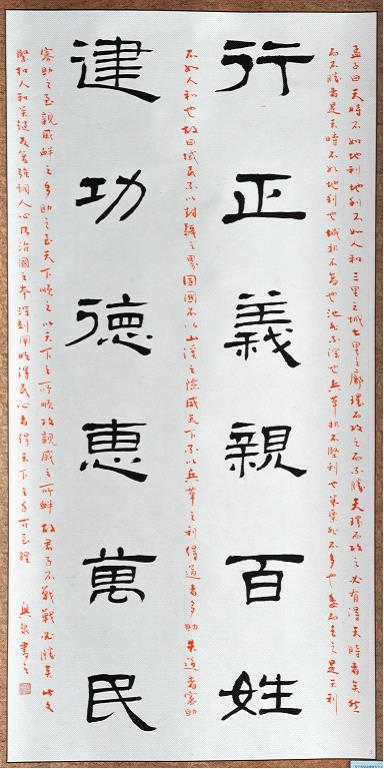 孟子曰天時不如地利地利不如人和三里之城七里之廓環而攻之而不勝夫環而攻之必有得天時者矣然
而不勝者是天時不如地利也城非不高也池非不深也兵革非不堅利也米粟非不多也委而去之是天利
行正義親百姓
不如人和也故曰域民不以封疆之界固國不以山溪之險威天下不以兵革之利得道者多助失道者寡助
建功德惠萬民
寡助之至親戚畔之多助之至天下順之以天下之所順攻親戚之所畔故君子不戰戰必勝矣此文
緊扣人和關鍵反複強調人心乃治國之本深刻闡明得民心者得天下之千古至理 書之